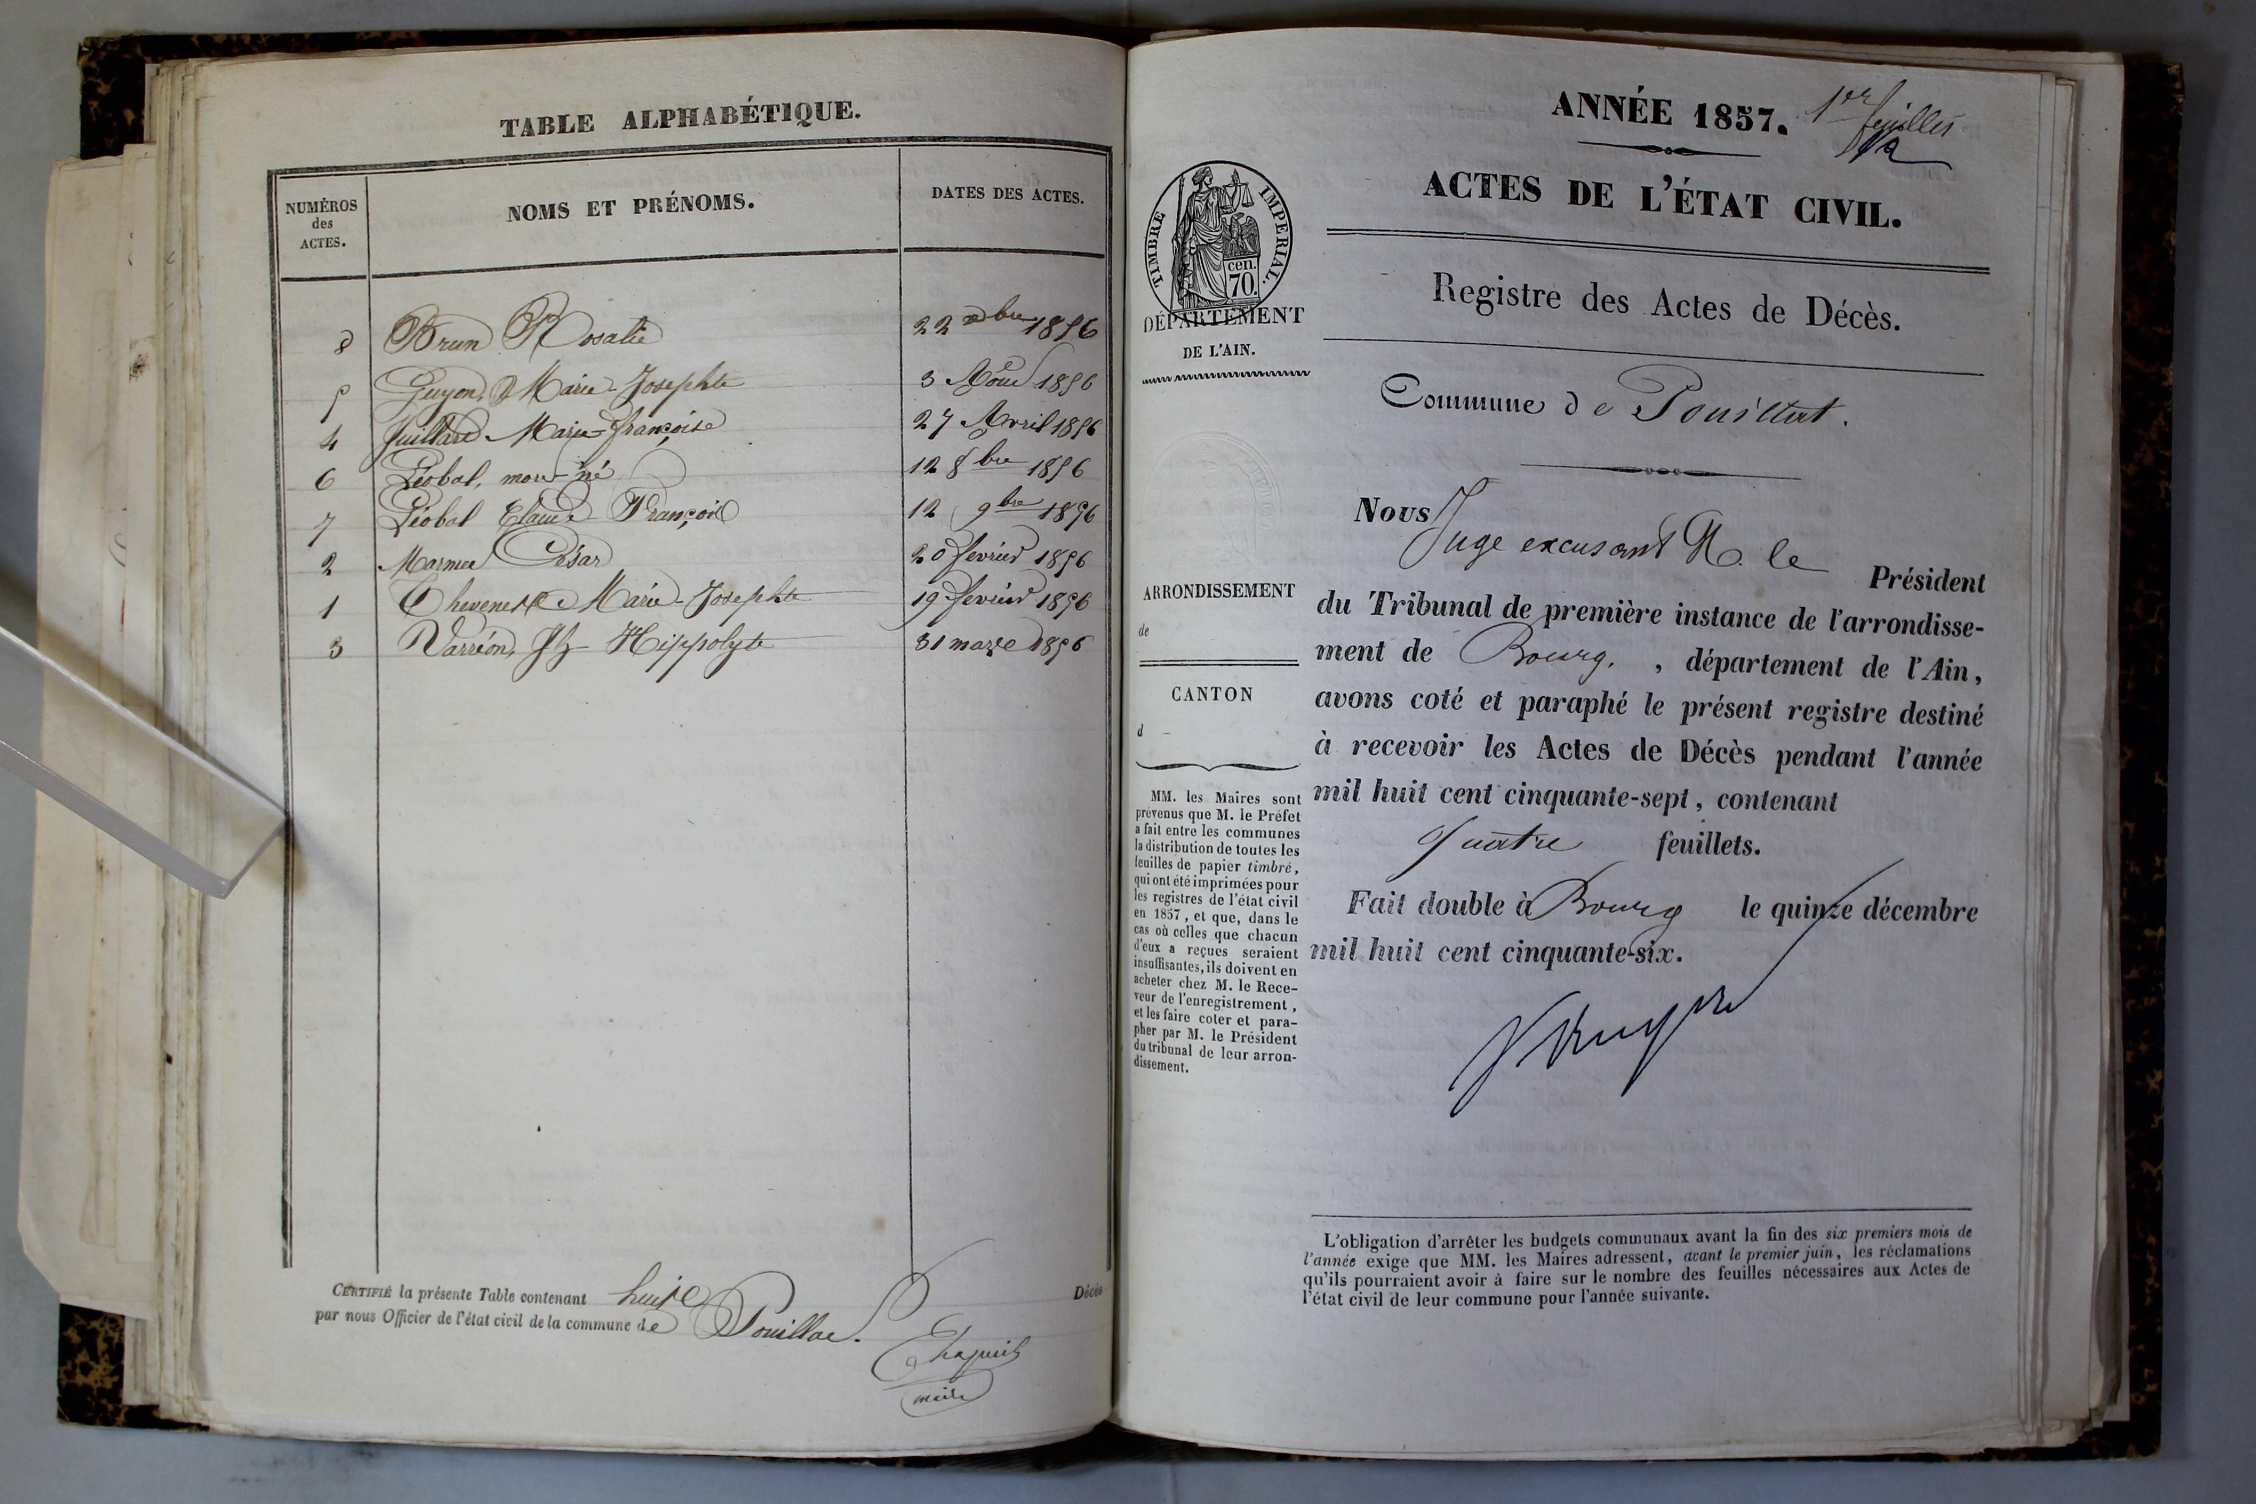 TABLE ALPHABÉTIQUE.
NUMÉROS
des
ACTES.
NOMS ET PRÉNOMS.
DATES DES ACTES.
8 Brun Rosalie 22 xbre 1856
5 Guyon, Marie-Josephte 3 Aout 1856
4 Juillard Marie-françoise 27 Avril 1856
6 Léobal, mort-né 12 8bre 1856
7 Léobal Claude François 12 9bre 1856
2 Marmet César 20 fevrier 1856
1 Marie-Josephte 19 fevrier 1856
3 Hippolyte 31 mars 1856
CERTIFIÉ la présente Table contenant huit Décès
par nous Officier de l'état civil de la commune de Pouillat.
maire
ANNÉE 1857.
1er feuillet
ACTES DE L'ÉTAT CIVIL.
TIMBRE IMPERIAL.
cen.
70.
DÉPARTEMENT
DE L'AIN.
Registre des Actes de Décès.
Commune de Pouillat.
Nous Juge excusant M. le Président
du Tribunal de première instance de l'arrondisse-
ment de Bourg, , département de l'Ain,
avons coté et paraphé le présent registre destiné
à recevoir les Actes de Décès pendant l'année
mil huit cent cinquante-sept, contenant
quatre feuillets.
Fait double à Bourg le quinze décembre
mil huit cent cinquante-six.
ARRONDISSEMENT
de
CANTON
d
MM. les Maires sont
prévenus que M. le Préfet
a fait entre les communes
la distribution de toutes les
feuilles de papier timbré,
qui ont été imprimées pour
les registres de l'état civil
en 1857, et que, dans le
cas où celles que chacun
d'eux a reçues seraient
insuffisantes, ils doivent en
acheter chez M. le Rece-
veur de l'enregistrement,
et les faire coter et para-
pher par M. le Président
du tribunal de leur arron-
dissement.
L'obligation d'arrêter les budgets communaux avant la fin des six premiers mois de
l'année exige que MM. les Maires adressent, avant le premier juin, les réclamations
qu'ils pourraient avoir à faire sur le nombre des feuilles nécessaires aux Actes de
l'état civil de leur commune pour l'année suivante.